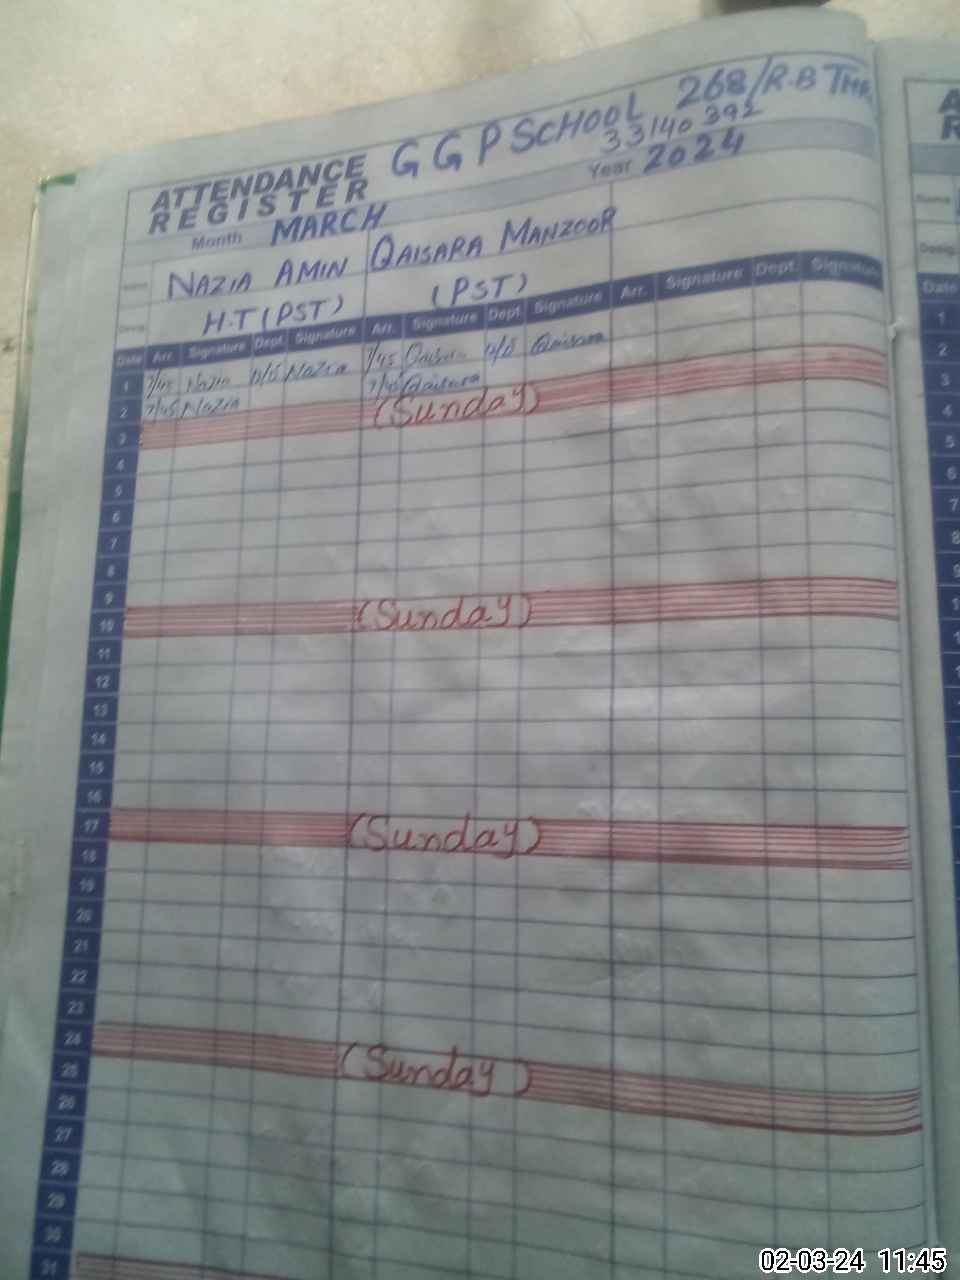 ATTENDANCE REGISTER GGP SCHOOL 268/R-B THR
33140392
Month MARCH Year 2024
Name NAZIA AMIN QAISARA MANZOOR
Desig. H.T (PST) (PST)
Date Arr. Signature Dept. Signature Arr. Signature Dept. Signature Arr. Signature Dept. Signature
1 7/45 Nazia Nazia 7/45 Qaisara Qaisara
2 7/45 Nazia 7/45 Qaisara
3 (Sunday)
4
5
6
7
8
9
10 (Sunday)
11
12
13
14
15
16
17 (Sunday)
18
19
20
21
22
23
24 (Sunday)
25
26
27
28
29
30
31
Date
1
2
3
4
5
6
7
8
02-03-24 11:45